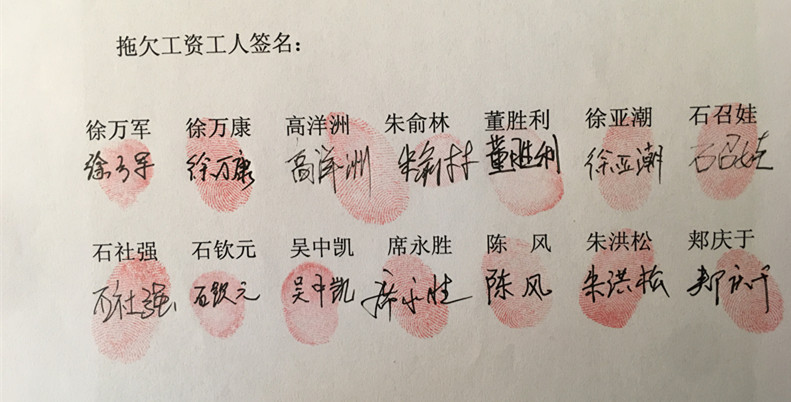 拖欠工资工人签名：
徐万军 徐万康 高洋洲 朱俞林 董胜利 徐亚潮 石召娃
徐万军 徐万康 高洋洲 朱俞林 董胜利 徐亚潮 石召娃
石社强 石钦元 吴中凯 席永胜 陈 风 朱洪松 郏庆于
石社强 石钦元 吴中凯 席永胜 陈风 朱洪松 郏庆于